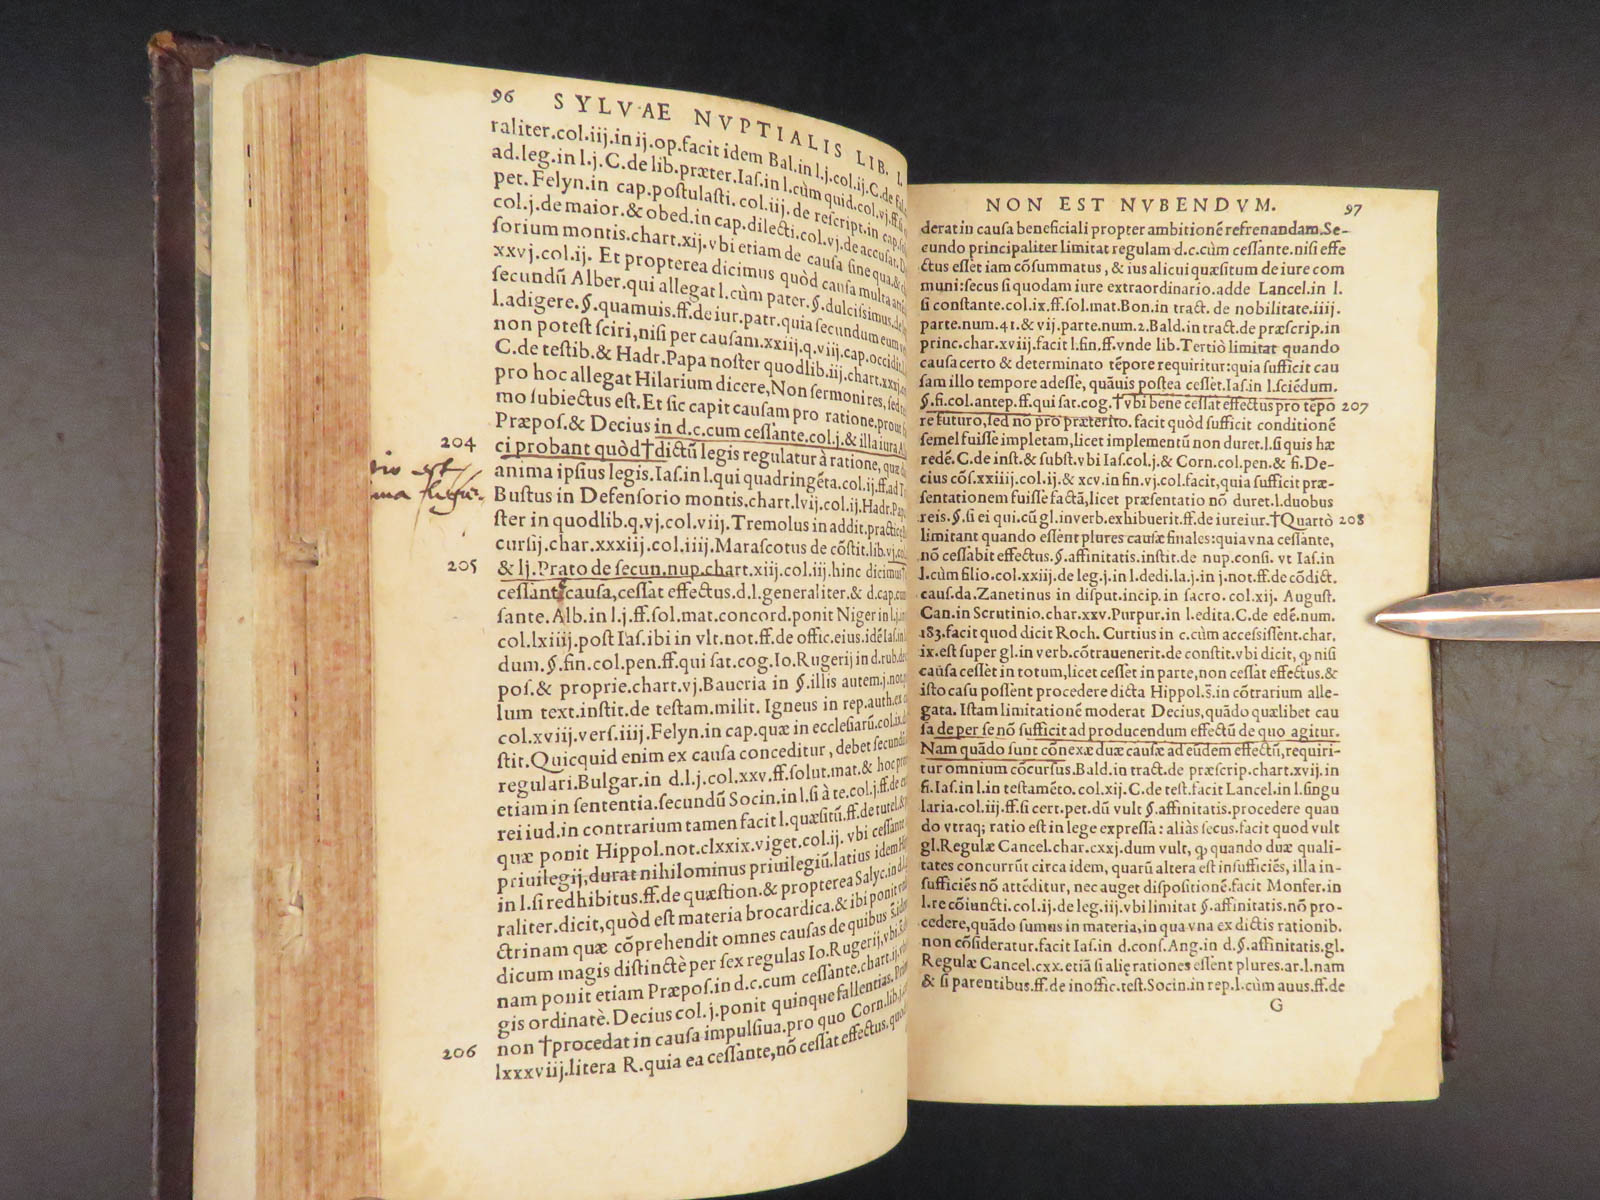 96 SYLVAE NVPTIALIS LIB. I.
raliter.col.iij.in ij.op.facit idem Bal.in l.j.col.ij.C.de
ad.leg.in l.j.C.de lib.præter.Iaſ.in l.cùm quid.col.vj.ff.
pet. Felyn.in cap.poſtulaſti.col.iij. de reſcript.in cap.
col.j.de maior.& obed.in cap.dilecti.col.vj.de accuſat.
ſorium montis.chart.xij.vbi etiam de cauſa ſine qua.&
xxvj.col.ij. Et propterea dicimus quòd cauſa multa
ſecundū Alber.qui allegat l.cùm pater.§.dulciſsimus.
l.adigere.§.quamuis.ff.de iur.patr.quia ſecundum eum
non poteſt ſciri,niſi per cauſam.xxiij.q.viij.cap.occidit.
C.de teſtib.& Hadr.Papa noſter quodlib.iij.chart.xxxj.
pro hoc allegat Hilarium dicere,Non ſermoni res, ſed
mo ſubiectus eſt.Et ſic capit cauſam pro ratione,prout
Præpoſ.& Decius in d.c.cum ceſſante.col.j.& illa iura
204 ci probant quòd†dictū legis regulatur à ratione, quæ
anima ipſius legis.Iaſ.in l.qui quadringēta.col.ij.ff.ad
Buſtus in Defenſorio montis.chart.lvij.col.ij.Hadr.Pap
ſter in quodlib.q.vj.col.viij.Tremolus in addit.practic
curſij.char.xxxiij.col.iiij.Maraſcotus de cōſtit.lib.vj.
205 & lj.Prato de ſecun.nup.chart.xiij.col.iij.hinc dicimus
ceſſante cauſa,ceſſat effectus.d.l.generaliter.& d.cap.cum
ſante.Alb.in l.j.ff.ſol.mat.concord.ponit Niger in l.j.
col.lxiiij.poſt Iaſ.ibi in vlt.not.ff.de offic.eius.idē Iaſ.in
dum.§.fin.col.pen.ff.qui ſat.cog.Io.Rugerij in d.rub.de
poſ.& proprie.chart.vj.Baueria in §.illis autem.j.not.
lum text.inſtit.de teſtam.milit. Igneus in rep.auth.ex
col.xvij.verſ.iiij.Felyn.in cap.quæ in eccleſiarū.col.ix.
ſtit.Quicquid enim ex cauſa conceditur, debet ſecundū
regulari.Bulgar.in d.l.j.col.xxv.ff.ſolut.mat.& hoc
etiam in ſententia.ſecundū Socin.in l.ſi à te.col.j.ff.de
rei iud.in contrarium tamen facit l.quæſitū.ff.de tutel.
quæ ponit Hippol.not.clxxix.viget.col.ij. vbi ceſſante
priuilegij,durat nihilominus priuilegiū.latius idem
in l.ſi redhibitus.ff.de quæſtion.& propterea Salyc.in
raliter.dicit,quòd eſt materia brocardica.& ibi ponit
ctrinam quæ cōprehendit omnes cauſas de quibus
dicum magis diſtinctè per ſex regulas Io.Rugerij,vbi
nam ponit etiam Præpoſ.in d.c.cum ceſſante.chart.ij.
gis ordinatè.Decius col.j.ponit quinque fallentias.
206 non †procedat in cauſa impulſiua.pro quo Corn.lib.j.
lxxxviij.litera R.quia ea ceſſante,nō ceſſat effectus.
eſt
NON EST NVBENDVM. 97
derat in cauſa beneficiali propter ambitionē refrenandam.Se-
cundo principaliter limitat regulam d.c.cùm ceſſante.niſi effe
ctus eſſet iam cōſummatus, & ius alicui quæſitum de iure com
muni:ſecus ſi quodam iure extraordinario.adde Lancel.in l.
ſi conſtante.col.ix.ff.ſol.mat.Bon.in tract. de nobilitate.iiij.
parte.num.41.& vij.parte.num.2.Bald.in tract.de præſcrip.in
princ.char.xviij.facit l.fin.ff.vnde lib.Tertiò limitat quando
cauſa certo & determinato tēpore requiritur:quia ſufficit cau
ſam illo tempore adeſſe, quāuis poſtea ceſſet.Iaſ.in l.ſciēdum.
§.fi.col.antep.ff.qui ſat.cog.†vbi bene ceſſat effectus pro tēpo 207
re futuro,ſed nō pro præterito.facit quòd ſufficit conditionē
ſemel fuiſſe impletam,licet implementū non duret.l.ſi quis hæ
redē.C.de inſt.& ſubſt.vbi Iaſ.col.j.& Corn.col.pen.& fi.De-
cius cōſ.xxiiij.col.ij.& xcv.in fin.vj.col.facit,quia ſufficit præ-
ſentationem fuiſſe factā,licet præſentatio nō duret.l.duobus
reis.§.ſi ei qui.cū gl.in verb.exhibuerit.ff.de iureiur.†Quartò 208
limitant quando eſſent plures cauſæ finales:quia vna ceſſante,
nō ceſſabit effectus.§.affinitatis.inſtit.de nup.conſi. vt Iaſ.in
l.cùm filio.col.xxiij.de leg.j.in l.dedi.la.j.in j.not.ff.de cōdict.
cauſ.da.Zanetinus in diſput.incip.in ſacro.col.xij. Auguſt.
Can.in Scrutinio.char.xxv.Purpur.in l.edita.C.de edē.num.
183.facit quod dicit Roch. Curtius in c.cùm acceſsiſſent.char.
ix.eſt ſuper gl.in verb.cōtrauenerit.de conſtit.vbi dicit, ꝙ niſi
cauſa ceſſet in totum,licet ceſſet in parte,non ceſſat effectus.&
iſto caſu poſſent procedere dicta Hippol.s̄.in cōtrarium alle-
gata. Iſtam limitationē moderat Decius,quādo quælibet cau
ſa de per ſe nō ſufficit ad producendum effectū de quo agitur.
Nam quādo ſunt cōnexæ duæ cauſæ ad eūdem effectū,requiri-
tur omnium cōcurſus.Bald.in tract.de præſcrip.chart.xvij.in
fi.Iaſ.in l.in teſtamēto.col.xij.C.de teſt.facit Lancel.in l.ſingu
laria.col.iij.ff.ſi cert.pet.dū vult §.affinitatis.procedere quan
do vtraq; ratio eſt in lege expreſſa : aliàs ſecus.facit quod vult
gl.Regulæ Cancel.char.cxxj.dum vult, ꝙ quando duæ quali-
tates concurrūt circa idem, quarū altera eſt inſufficiēs, illa in-
ſufficiēs nō attēditur, nec auget diſpoſitionē.facit Monfer.in
l.re cōiuncti.col.ij.de leg.iij.vbi limitat §.affinitatis.nō pro-
cedere,quādo ſumus in materia,in qua vna ex dictis rationib.
non cōſideratur.facit Iaſ.in d.conſ.Ang.in d.§.affinitatis.gl.
Regulæ Cancel.cxx.etiā ſi alię rationes eſſent plures.ar.l.nam
& ſi parentibus.ff.de inoffic.teſt.Socin.in rep.l.cùm auus.ff.de
G